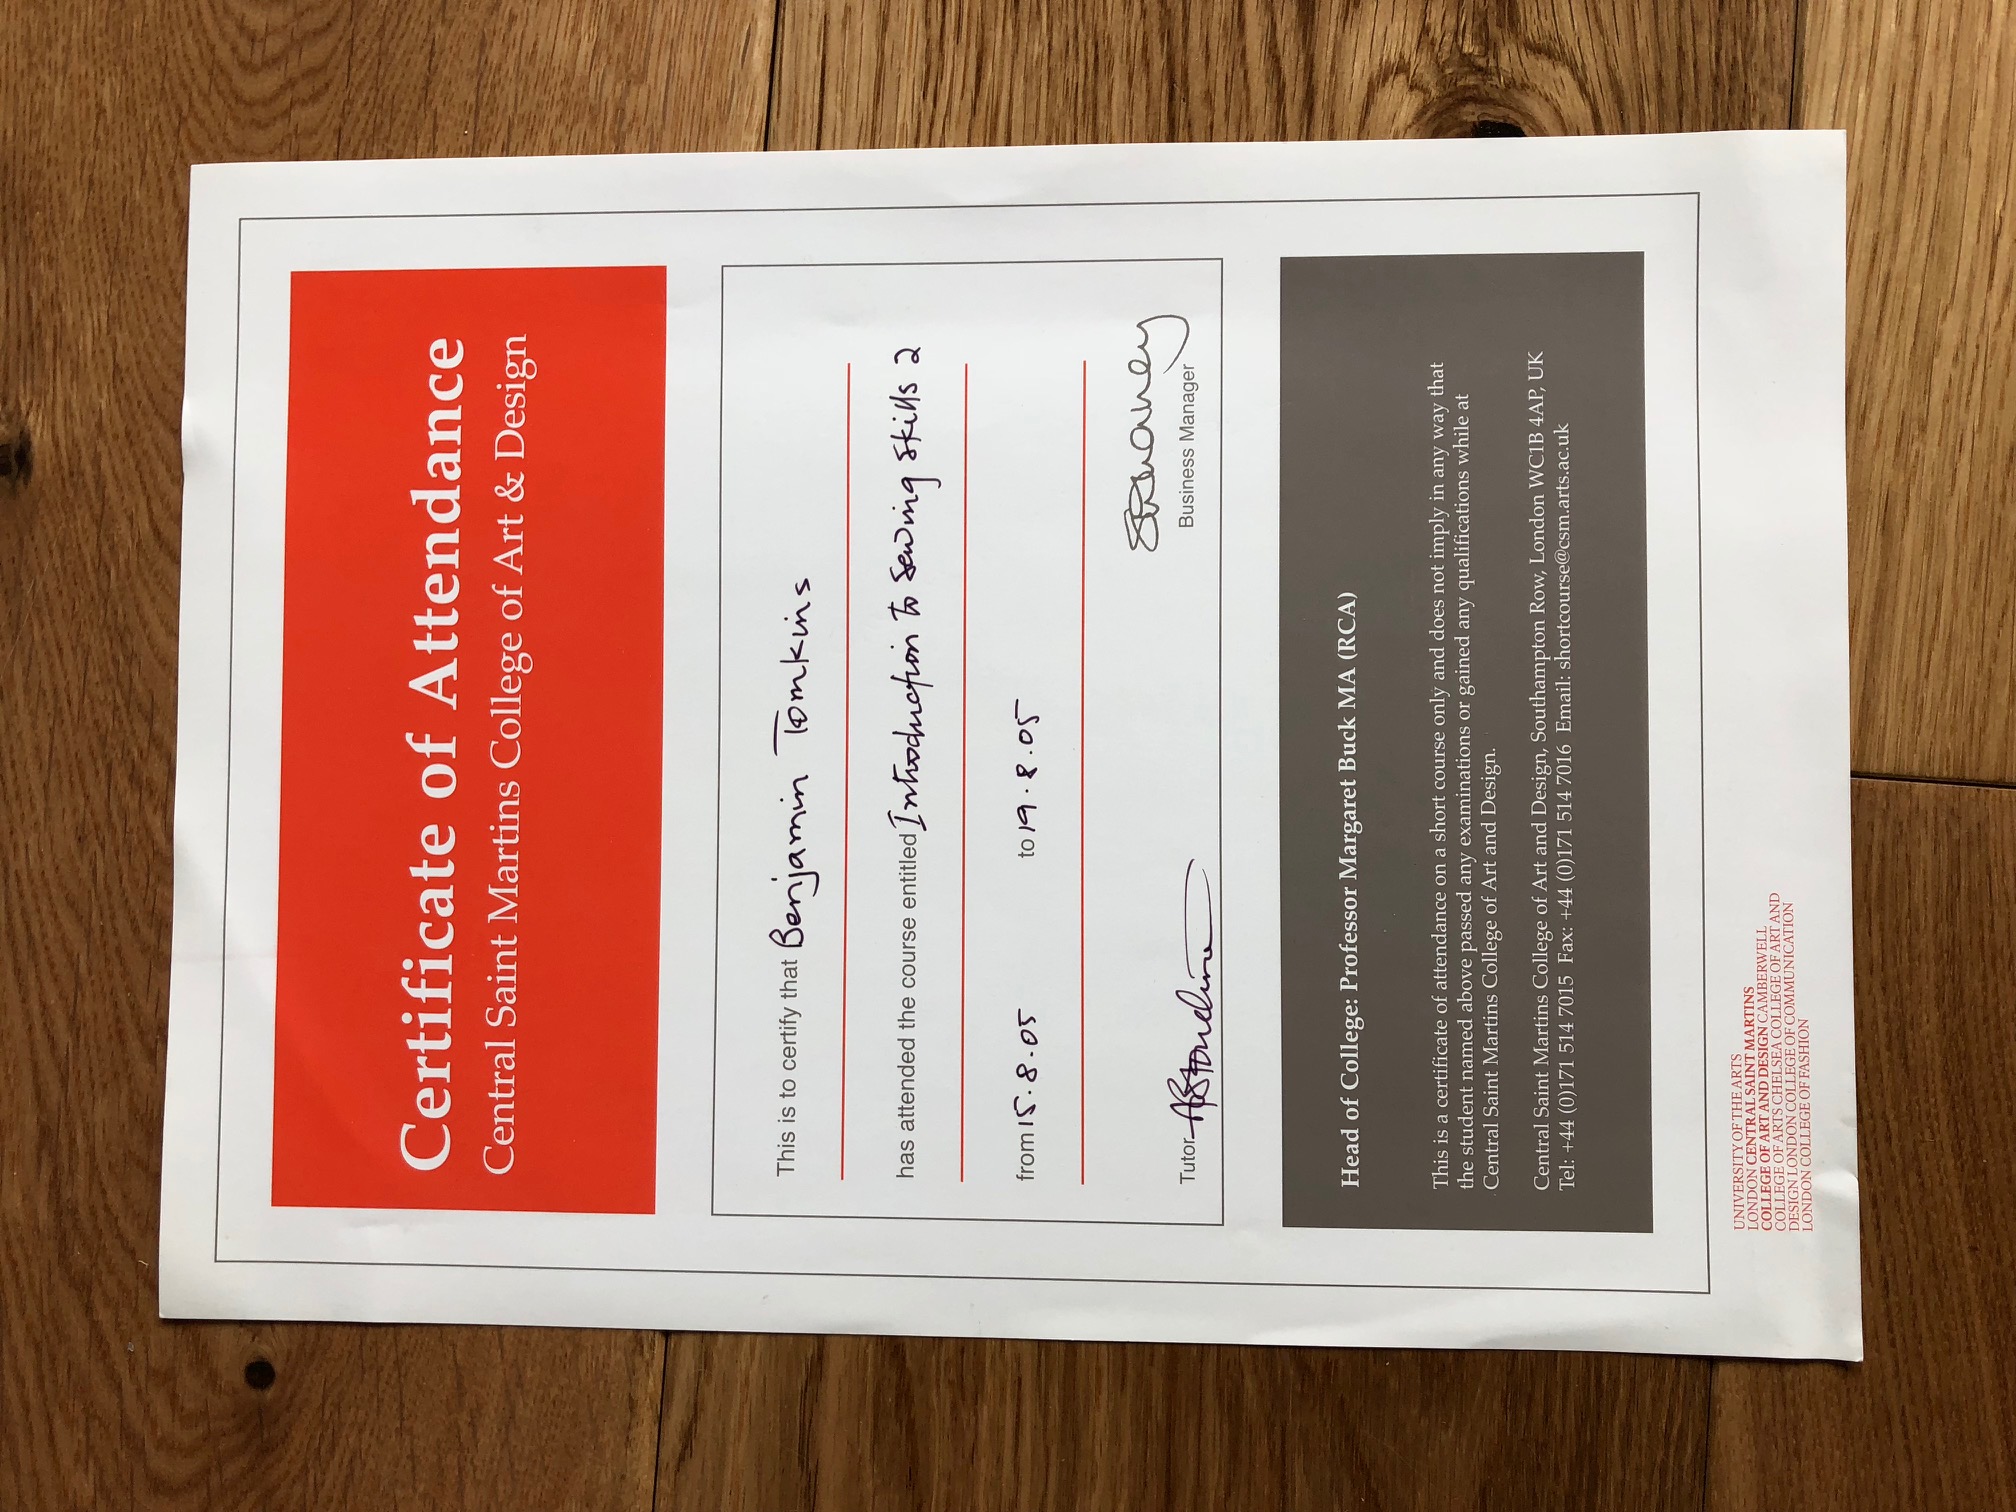 Certificate of Attendance
Central Saint Martins College of Art & Design
This is to certify that Benjamin Tomkins
has attended the course entitled Introduction to Sewing Skills 2
from 15.8.05 to 19.8.05
Tutor
Business Manager
Head of College: Professor Margaret Buck MA (RCA)
This is a certificate of attendance on a short course only and does not imply in any way that
the student named above passed any examinations or gained any qualifications while at
Central Saint Martins College of Art and Design.
Central Saint Martins College of Art and Design, Southampton Row, London WC1B 4AP, UK
Tel: +44 (0)171 514 7015 Fax: +44 (0)171 514 7016 Email: shortcourse@csm.arts.ac.uk
UNIVERSITY OF THE ARTS
LONDON CENTRAL SAINT MARTINS
COLLEGE OF ART AND DESIGN CAMBERWELL
COLLEGE OF ARTS CHELSEA COLLEGE OF ART AND
DESIGN LONDON COLLEGE OF COMMUNICATION
LONDON COLLEGE OF FASHION